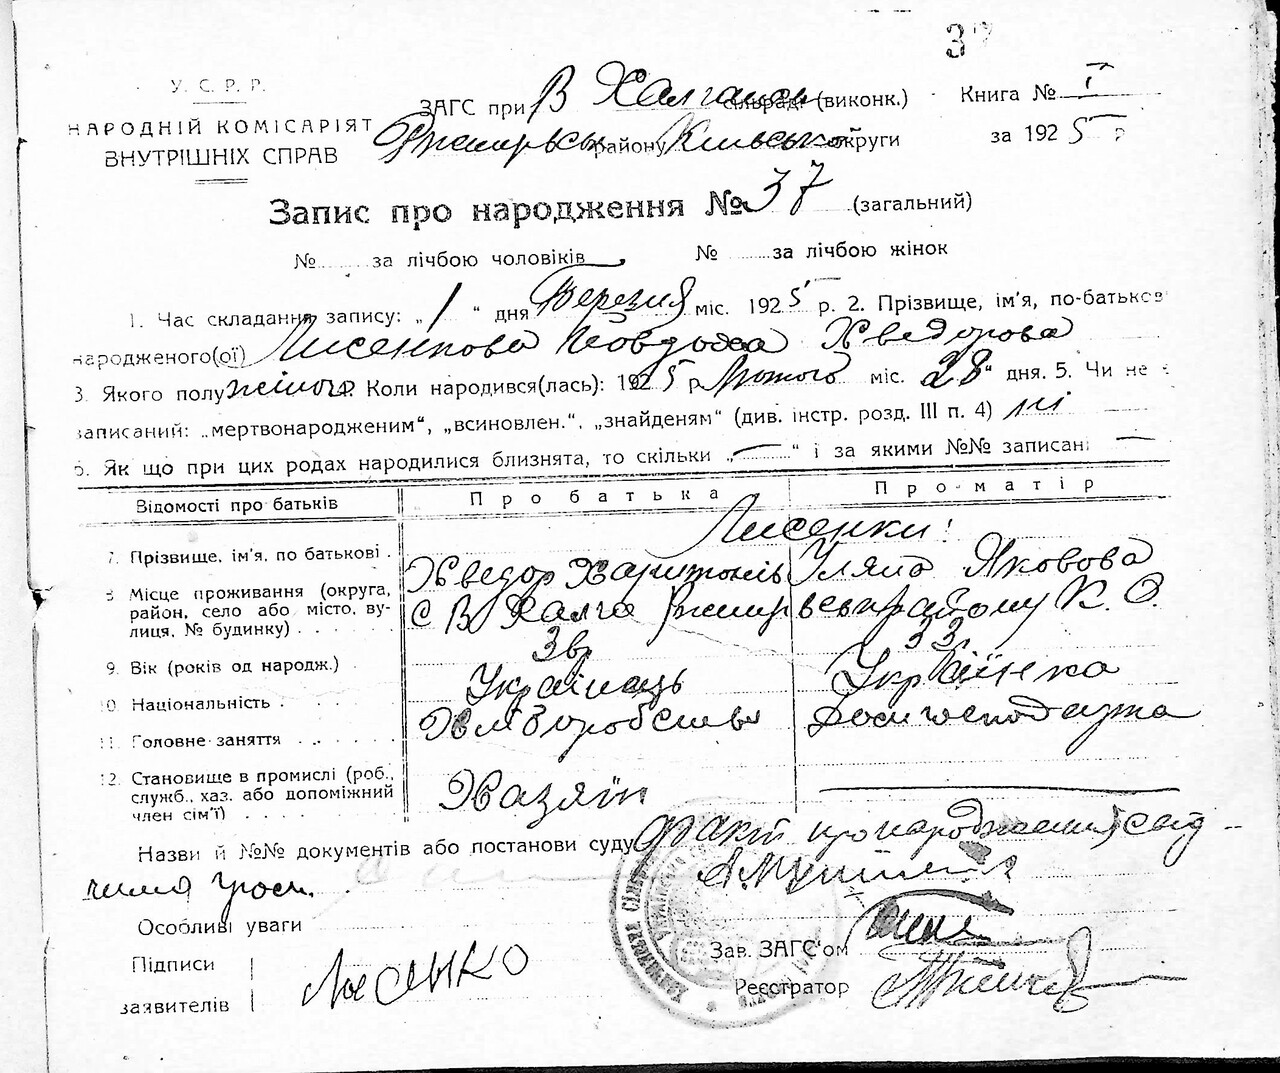 У. С. Р. Р.
НАРОДНІЙ КОМІСАРІЯТ
ВНУТРІШНІХ СПРАВ
ЗАГС при В Халганськ сільрад. (виконк.)
району Київськ округи
Книга № I
за 1925 р
Запис про народження № 37 (загальний)
№ за лічбою чоловіків № за лічбою жінок
1. Час складання запису: „1“ дня Березня міс. 1925 р. 2. Прізвище, ім'я, по-батьков
народженого(ої) Лисенкова Йовдоха Хведорова
3. Якого полу жіного. Коли народився(лась): 1925 р. Лютого міс. 28“ дня. 5. Чи не
записаний: „мертвонародженим“, „всиновлен.“, „знайденям“ (див. інстр. розд. III п. 4) ні
6. Як що при цих родах народилися близнята, то скільки „—“ і за якими №№ записані —
Відомості про батьків
Про батька
Про матір
Лисенки
7. Прізвище, ім'я, по батькові
Хведор Харитонів
Уляна Яковова
8. Місце проживання (округа,
район, село або місто, ву-
лиця, № будинку)
с В Халча район К. О.
9. Вік (років од народж.)
33
10. Національність
Українець
Українка
11. Головне заняття
Хліборобство
Домогосподарка
12. Становище в промислі (роб.,
служб., хаз. або допоміжний
член сім'ї)
Хазяїн
Назви й №№ документів або постанови суду факт про народження свід-
чила
Особливі уваги
Підписи
заявителів
Лисенко
Зав. ЗАГС'ом
Реєстратор